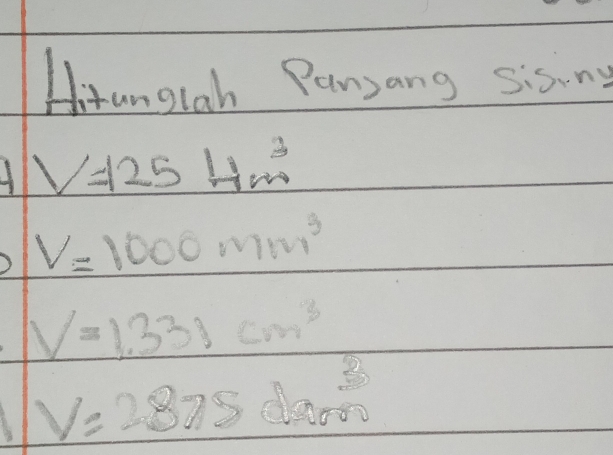 Hitunglah Panjang sisiny
V=125 Hm³
V=1000 mm³
V=1.331 cm³
V=2875 dam³